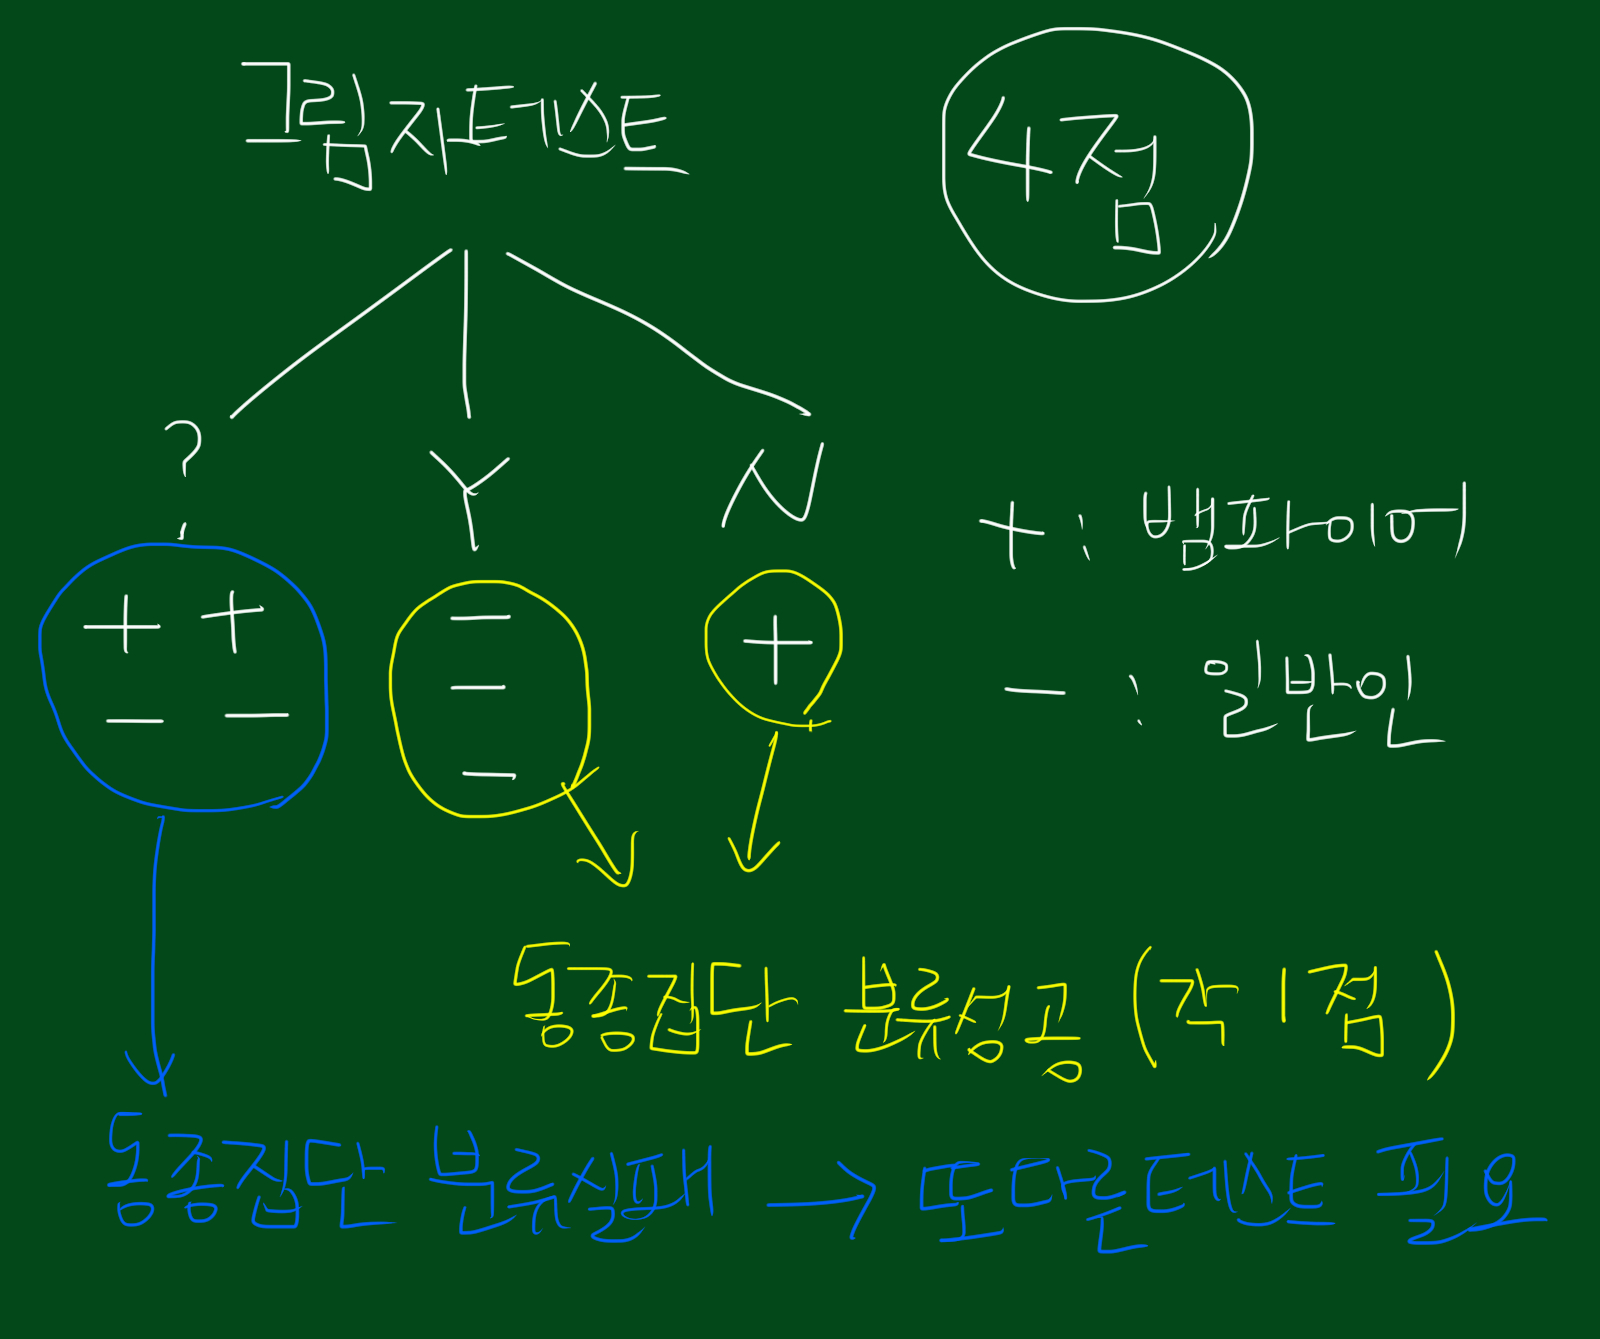 그림자테스트
4점
? Y N
+ : 뱀파이어
+ +
- -
-
-
-
+
- : 일반인
동종집단 분류성공 (각 1점)
동종집단 분류실패 → 또다른테스트 필요